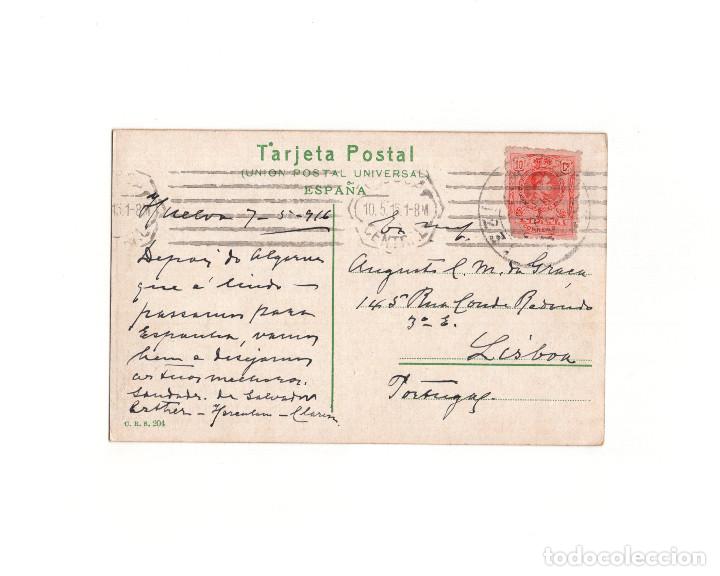 Tarjeta Postal
(UNION POSTAL UNIVERSAL)
ESPAÑA
10.5.16 1-8M
CENTRAL
10 Cs
Huelva 7-5-916
Depois do Algarve
que é lindo
passamos para
Espanha, vamos
bem e desejamos
as tuas melhoras.
Saudades de Salvador
Esther - Clarisse
C. R. S. 204
Augusto C. M. da Graça
145 Rua Conde Redondo
3º E.
Lisboa
Portugal
todocoleccion.net